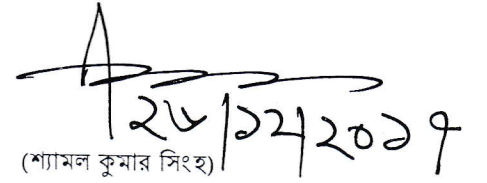 ২৮/১২/২০১৭
(শ্যামল কুমার সিংহ)